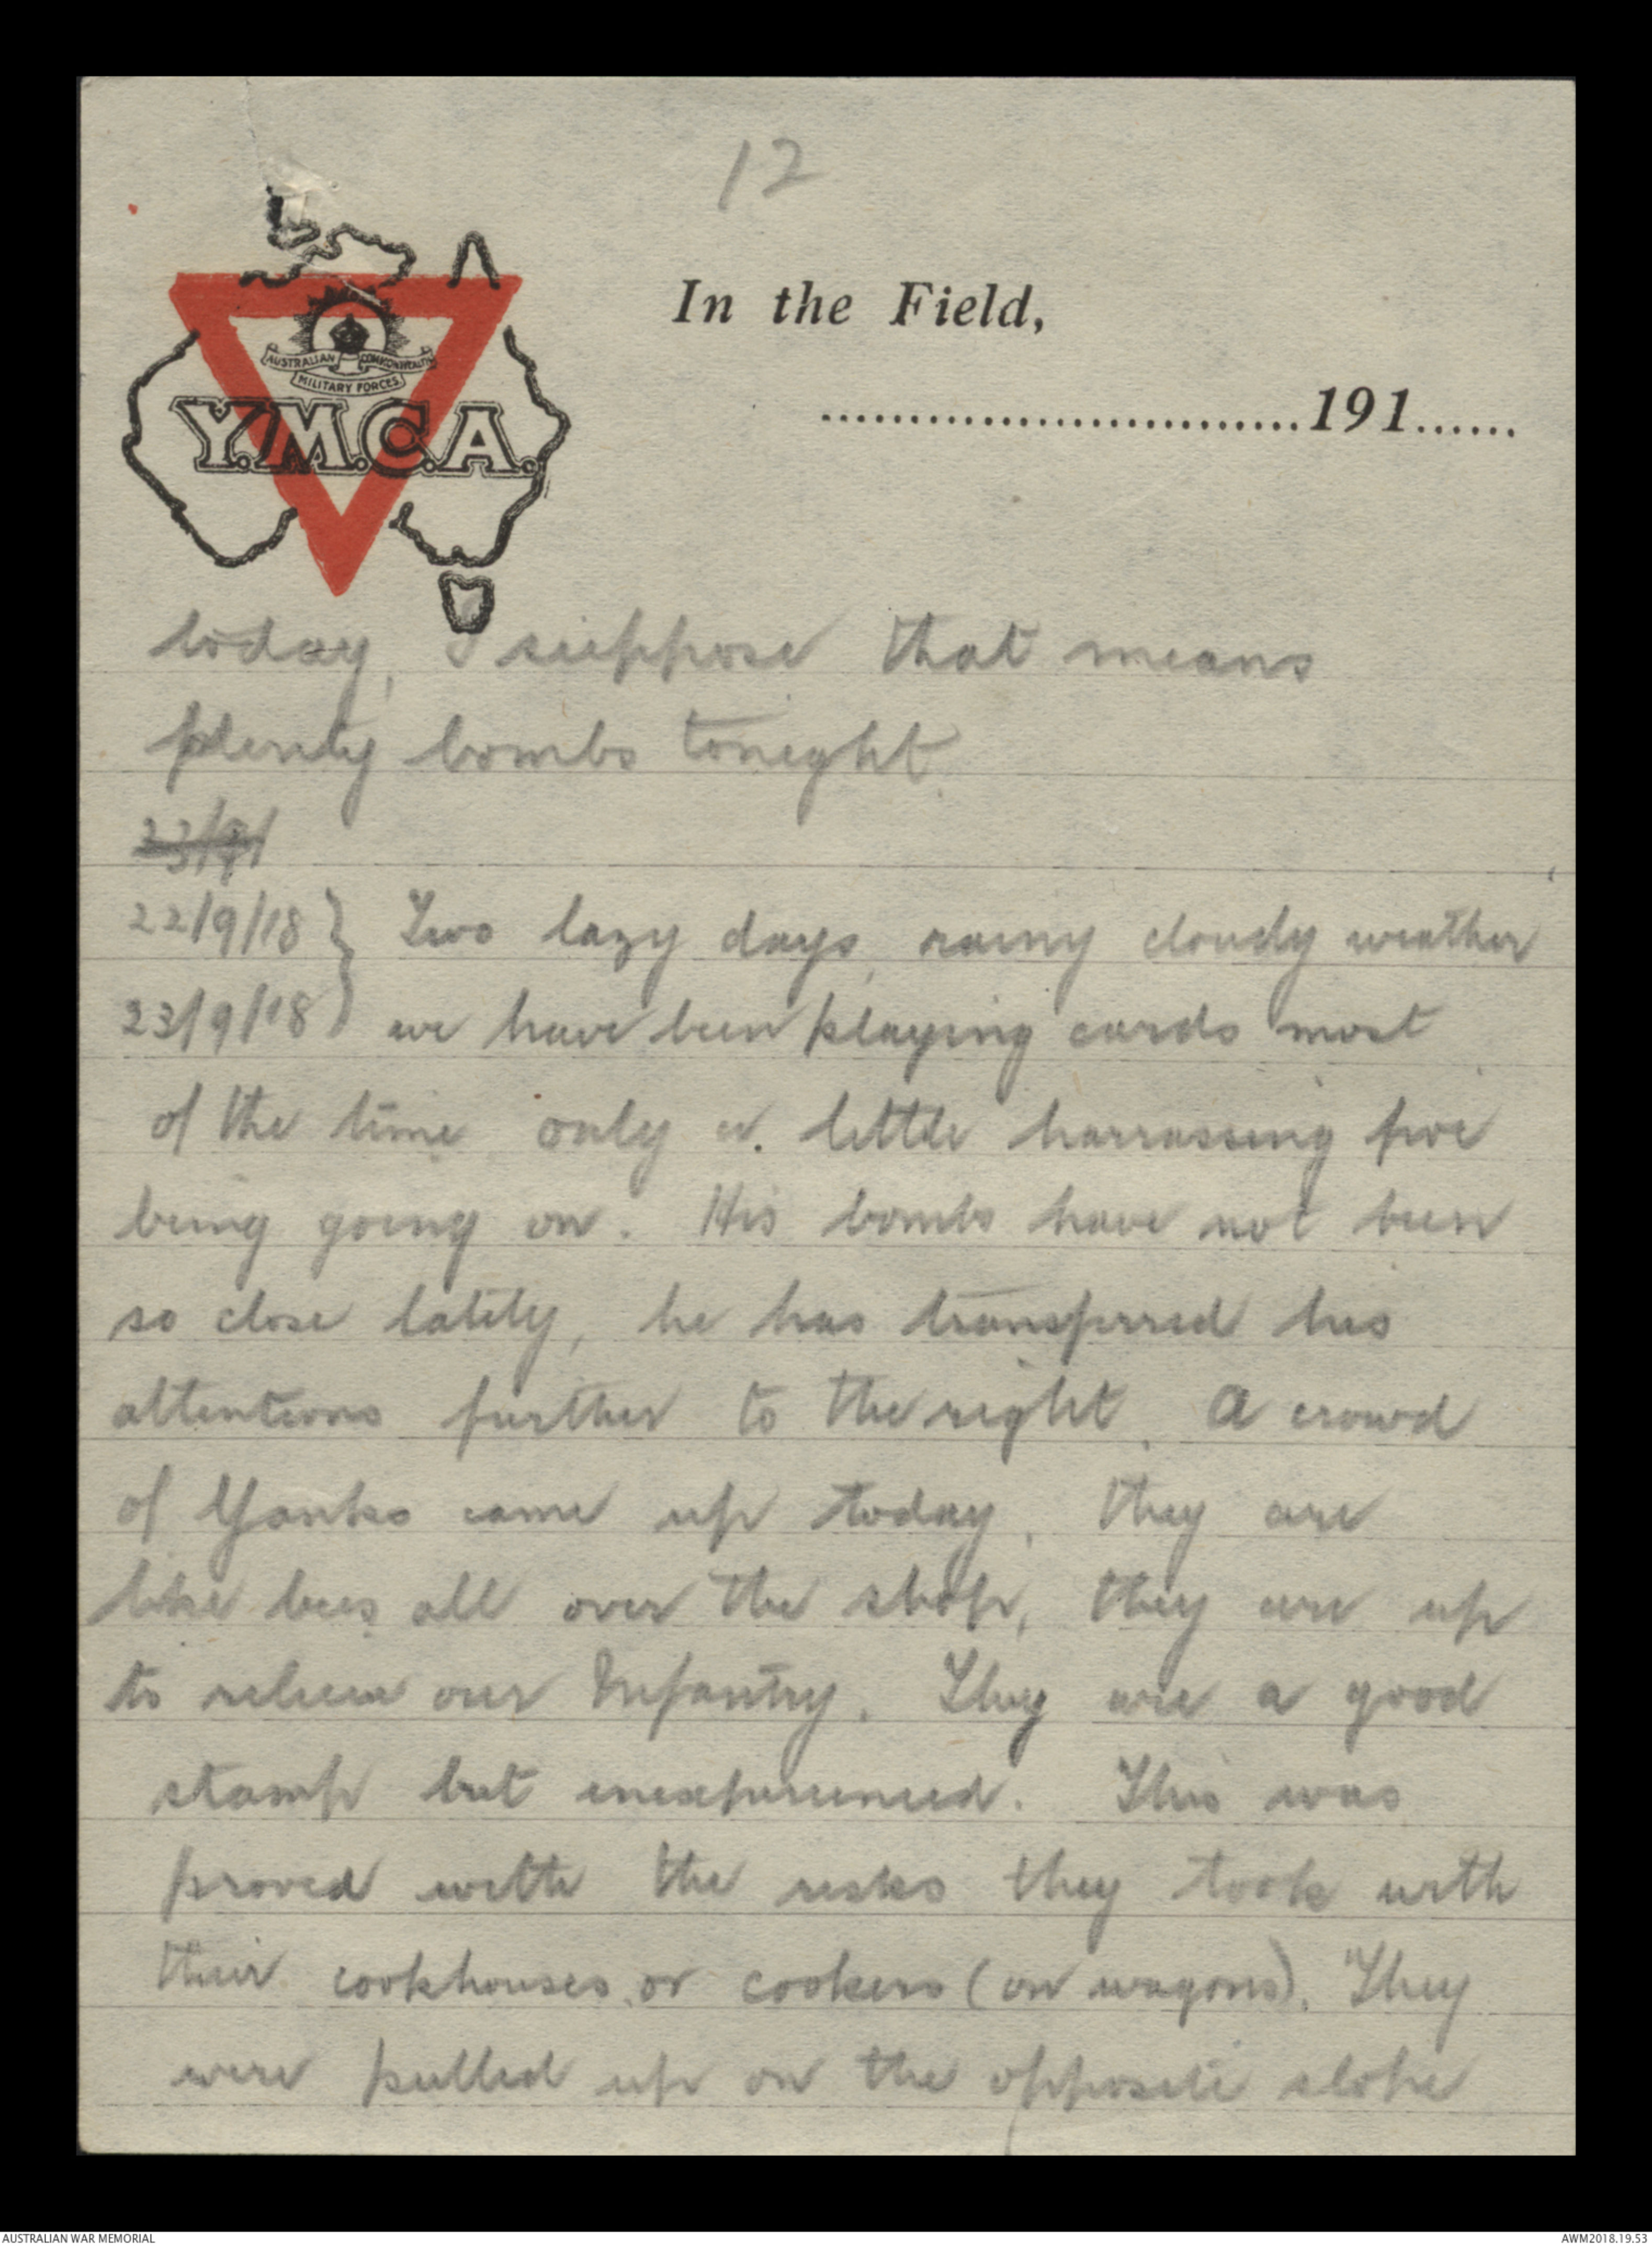 12
In the Field,
AUSTRALIAN COMMONWEALTH
MILITARY FORCES
Y.M.C.A.
..............................191......
today, I suppose that means
plenty bombs tonight.
23/9/
22/9/18 } Two lazy days, rainy cloudy weather
23/9/18 } we have been playing cards most
of the time only a. little harrassing fire
being going on. His bombs have not been
so close lately, he has transferred his
attentions further to the right. A crowd
of Yanks came up today, they are
like bees all over the shop, they are up
to relieve our Infantry. They are a good
stamp but inexperienced. This was
proved with the risks they took with
their cookhouses or cookers (on wagons). They
were pulled up on the opposite slope
AUSTRALIAN WAR MEMORIAL
AWM2018.19.53